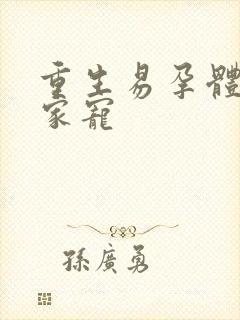 重生易孕體
家寵
孫廣勇